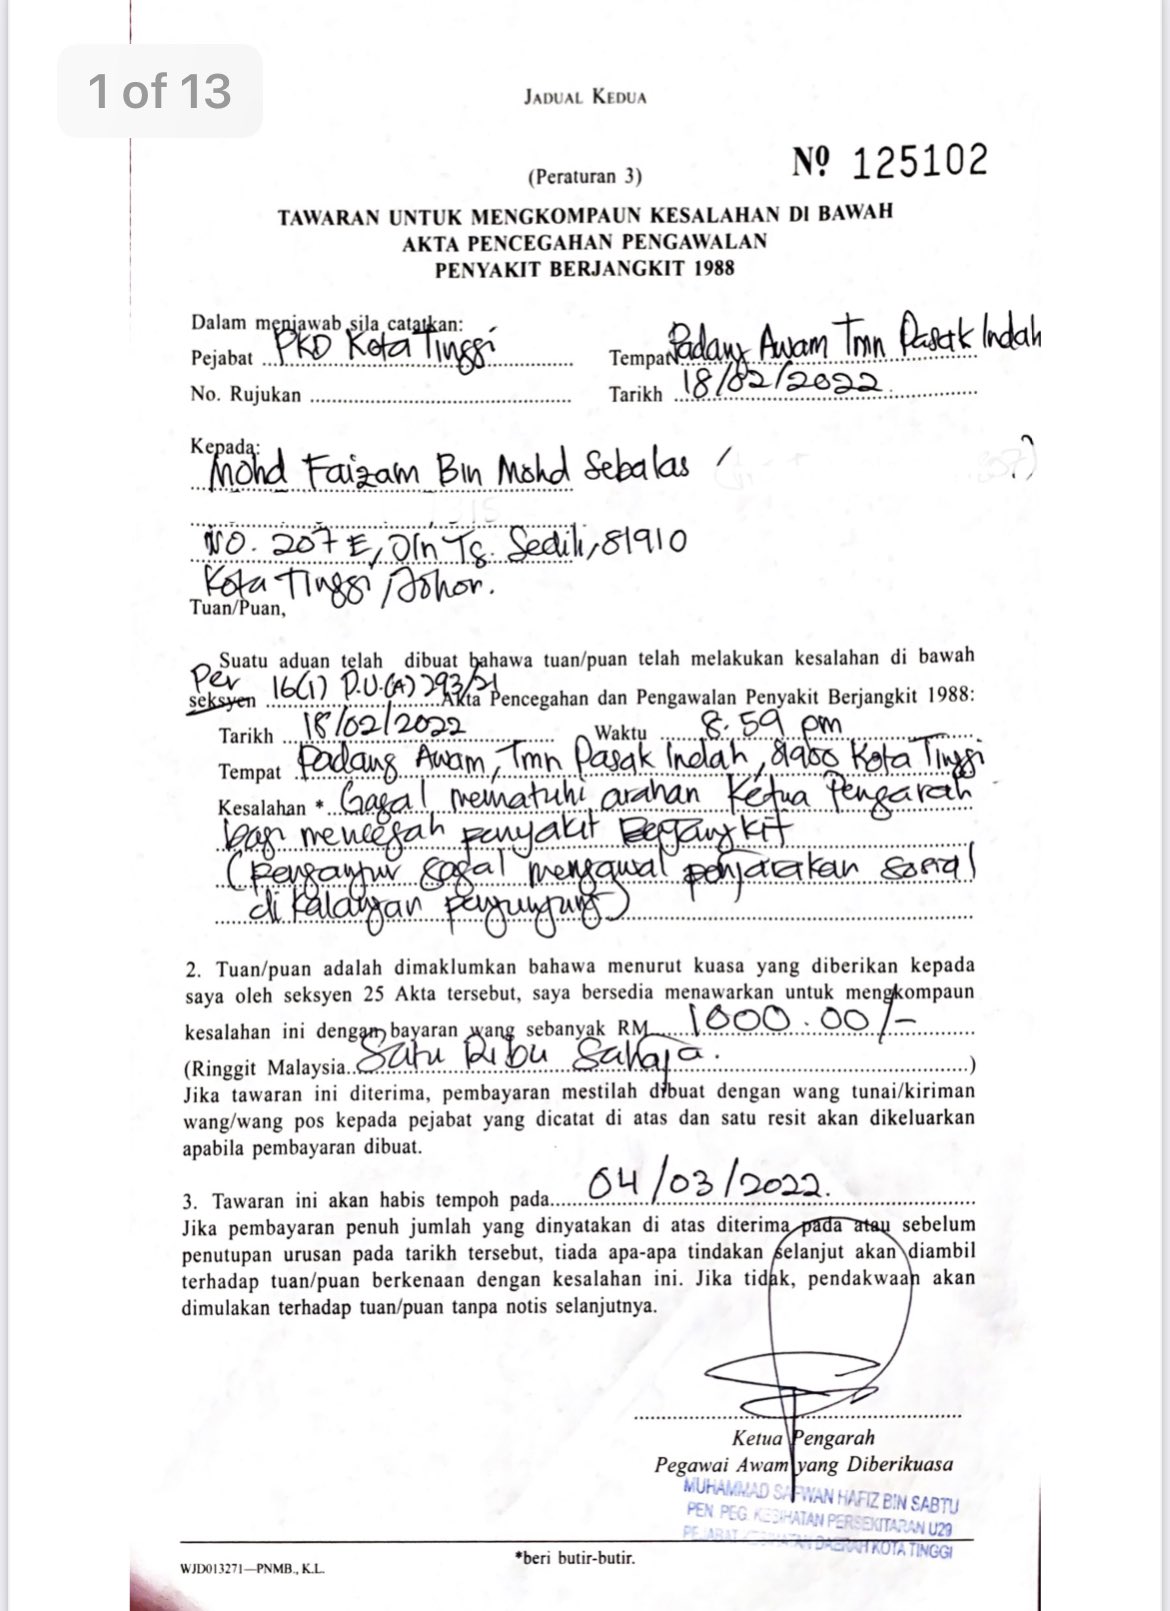 1 of 13
JADUAL KEDUA
Nº 125102
(Peraturan 3)
TAWARAN UNTUK MENGKOMPAUN KESALAHAN DI BAWAH
AKTA PENCEGAHAN PENGAWALAN
PENYAKIT BERJANGKIT 1988
Dalam menjawab sila catatkan:
Pejabat PKD Kota Tinggi
Tempat Padang Awam Tmn Pasak Indah
No. Rujukan
Tarikh 18/02/2022
Kepada:
Mohd Faizam Bin Mohd Sebalas
NO. 207 E, Jln Tg. Sedili, 81910
Kota Tinggi, Johor.
Tuan/Puan,
Suatu aduan telah dibuat bahawa tuan/puan telah melakukan kesalahan di bawah
Per
seksyen 16(1) P.U.(A) 293/21 Akta Pencegahan dan Pengawalan Penyakit Berjangkit 1988:
Tarikh 18/02/2022 Waktu 8.59 pm
Tempat Padang Awam, Tmn Pasak Indah, 81900 Kota Tinggi
Kesalahan * Gagal mematuhi arahan Ketua Pengarah
bagi mencegah penyakit Berjangkit
(Penganjur gagal mengawal penjarakan sosial
di kalangan pengunjung)
2. Tuan/puan adalah dimaklumkan bahawa menurut kuasa yang diberikan kepada
saya oleh seksyen 25 Akta tersebut, saya bersedia menawarkan untuk mengkompaun
kesalahan ini dengan bayaran wang sebanyak RM 1000.00/-
(Ringgit Malaysia Satu Ribu Sahaja.)
Jika tawaran ini diterima, pembayaran mestilah dibuat dengan wang tunai/kiriman
wang/wang pos kepada pejabat yang dicatat di atas dan satu resit akan dikeluarkan
apabila pembayaran dibuat.
3. Tawaran ini akan habis tempoh pada 04/03/2022.
Jika pembayaran penuh jumlah yang dinyatakan di atas diterima pada atau sebelum
penutupan urusan pada tarikh tersebut, tiada apa-apa tindakan selanjut akan diambil
terhadap tuan/puan berkenaan dengan kesalahan ini. Jika tidak, pendakwaan akan
dimulakan terhadap tuan/puan tanpa notis selanjutnya.
Ketua Pengarah
Pegawai Awam yang Diberikuasa
MUHAMMAD SAFWAN HAFIZ BIN SABTU
PEN PEG KESIHATAN PERSEKITARAN U29
PEJABAT KESIHATAN DAERAH KOTA TINGGI
*beri butir-butir.
WJD013271—PNMB., K.L.